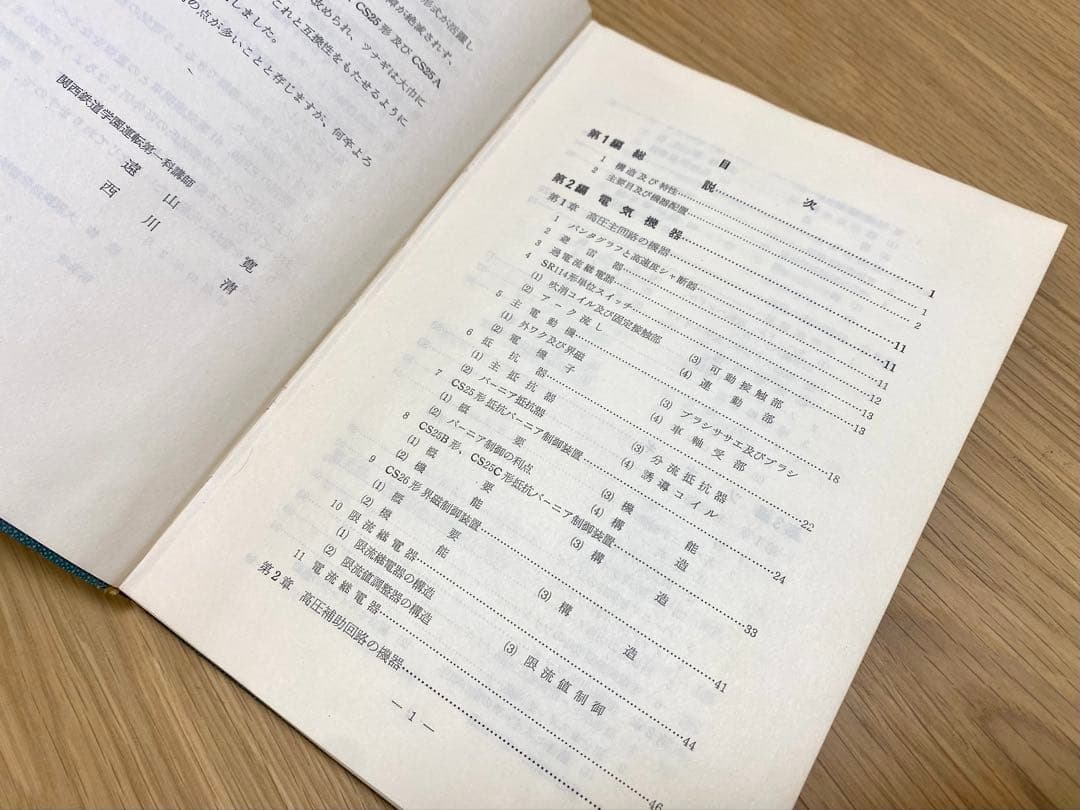 形式が活躍し
が絶滅されず、
改められ、CS25形及びCS25A
これと互換性をもたせるように
ツナギは大巾に
しました。
の点が多いことと存じますが、何卒よろ
関西鉄道学園運転第一科講師
遠山寛
西川清
目次
第1編 総説……1
1 構造及び特性……1
2 主要目及び機器配置……2
第2編 電気機器……11
第1章 高圧主回路の機器……11
1 パンタグラフと高速度シャ断器……11
2 避雷器……12
3 過電流継電器……13
4 SR114形単位スイッチ……13
(1) 吹消コイル及び固定接触部 (3) 可動接触部
(2) アーク流し (4) 連動部
5 主電動機……18
(1) 外ワク及び界磁 (3) ブラシササエ及びブラシ
(2) 電機子 (4) 車軸受部
6 抵抗器……22
(1) 主抵抗器 (3) 分流抵抗器
(2) バーニア抵抗器 (4) 誘導コイル
7 CS25形抵抗バーニア制御装置……24
(1) 概要 (3) 機能
(2) バーニア制御の利点 (4) 構造
8 CS25B形、CS25C形抵抗バーニア制御装置……33
(1) 概要 (3) 構造
(2) 機能
9 CS26形界磁制御装置……41
(1) 概要 (3) 構造
(2) 機能
10 限流継電器……44
(1) 限流継電器の構造 (3) 限流値制御
(2) 限流値調整器の構造
11 電流継電器……46
第2章 高圧補助回路の機器
— 1 —